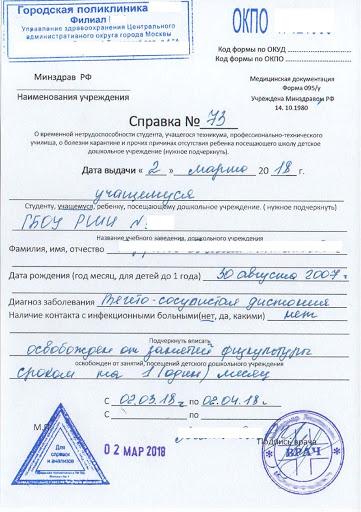 Городская поликлиника
Филиал
Управление здравоохранения Центрального
административного округа города Москвы
ОКПО
Код формы по ОКУД
Код формы по ОКПО
Минздрав РФ
Наименования учреждения
Медицинская документация
Форма 095/у
Учреждена Минздравом РФ
14. 10.1980
Справка № 73
О временной нетрудоспособности студента, учащегося техникума, профессионально-технического
училища, о болезни карантине и прочих причинах отсутствия ребенка посещающего школу детское
дошкольное учреждений (нужное подчеркнуть).
Дата выдачи « 2 » марта 20 18 г.
учащемуся
Студенту, учащемуся, ребенку, посещающему дошкольное учреждение. ( нужное подчеркнуть)
ГБОУ №
Название учебного заведения, дошкольного учреждения
Фамилия, имя, отчество
Дата рождения (год месяц, для детей до 1 года) 30 августа 2007 г
Диагноз заболевания Вегето-сосудистая дистония
Наличие контакта с инфекционными больными(нет, да, какими) нет
Подчеркнуть вписать
освобожден от занятий физкультуры
освобожден от занятий, посещений детского дошкольного учреждения
сроком на 1 (один) месяц
С 02.03.18 г по 02.04.18 г.
С по
М.П.
02 МАР 2018
Подпись врача
Для
справок
и анализов
ВРАЧ